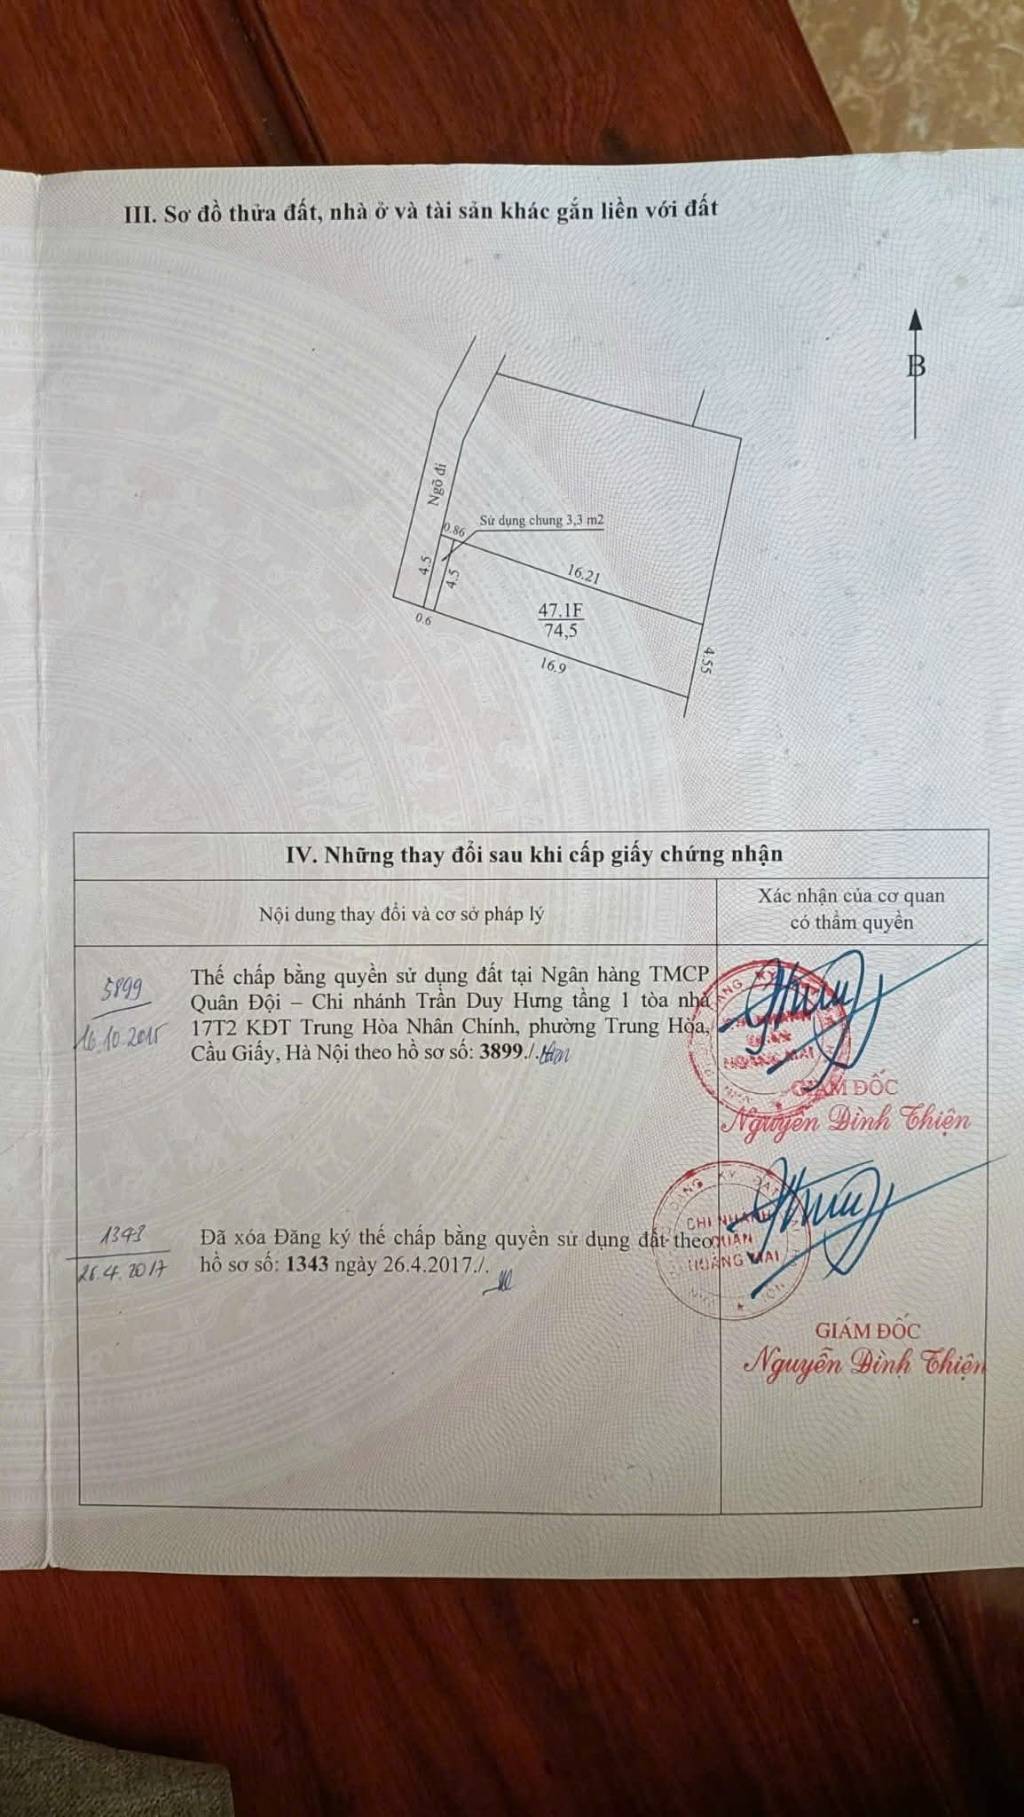 III. Sơ đồ thửa đất, nhà ở và tài sản khác gắn liền với đất
B
Ngõ đi
Sử dụng chung 3,3 m2
0.86
4.5
4.5
16.21
47.1F
74,5
0.6
16.9
4.55
IV. Những thay đổi sau khi cấp giấy chứng nhận
Nội dung thay đổi và cơ sở pháp lý
Xác nhận của cơ quan
có thẩm quyền
3899
16.10.2015
Thế chấp bằng quyền sử dụng đất tại Ngân hàng TMCP
Quân Đội – Chi nhánh Trần Duy Hưng tầng 1 tòa nhà
17T2 KĐT Trung Hòa Nhân Chính, phường Trung Hòa,
Cầu Giấy, Hà Nội theo hồ sơ số: 3899./.
HOÀNG MAI
GIÁM ĐỐC
Nguyễn Đình Thiện
1343
26.4.2017
Đã xóa Đăng ký thế chấp bằng quyền sử dụng đất theo
hồ sơ số: 1343 ngày 26.4.2017./.
CHI NHÁNH
QUẬN
HOÀNG MAI
GIÁM ĐỐC
Nguyễn Đình Thiện